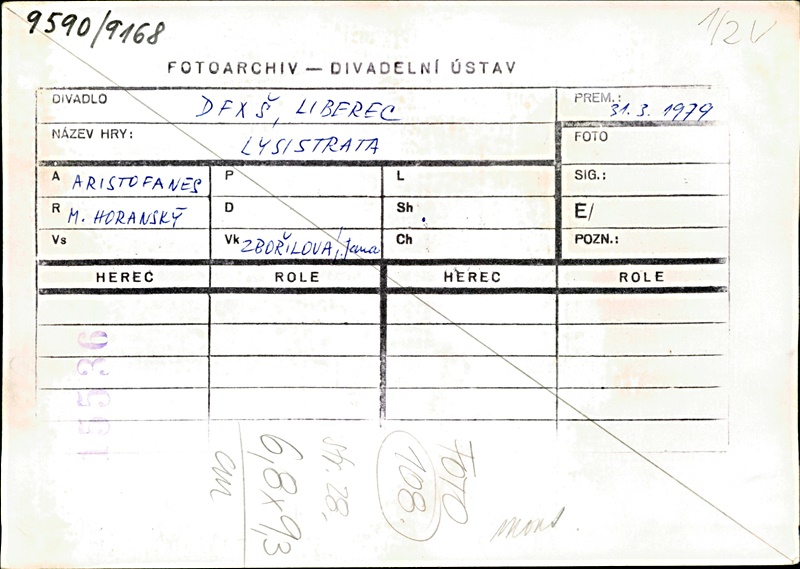 9590/9168
1/2V
FOTOARCHIV — DIVADELNÍ ÚSTAV
DIVADLO DFXŠ, LIBEREC
PREM.: 31.3.1979
NÁZEV HRY: LYSISTRATA
FOTO
A ARISTOFANES P L SIG.:
R M. HORANSKÝ D Sh . E/
Vs Vk ZBOŘILOVÁ, Jana Ch POZN.:
HEREC ROLE HEREC ROLE
15536
cm
6,8x9,3
str. 28,
108.
FOTO